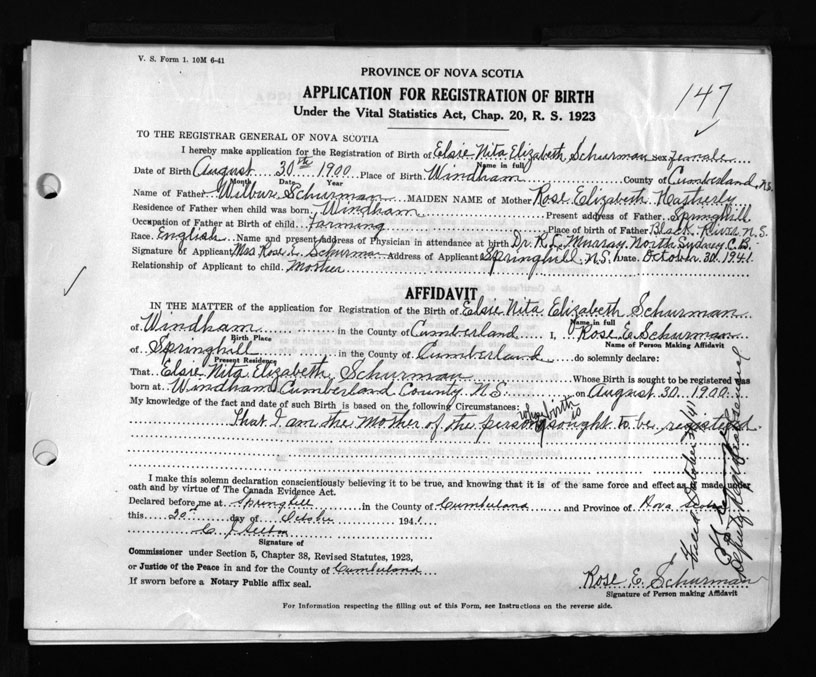 V. S. Form 1. 10M 6-41
PROVINCE OF NOVA SCOTIA
147
APPLICATION FOR REGISTRATION OF BIRTH
Under the Vital Statistics Act, Chap. 20, R. S. 1923
TO THE REGISTRAR GENERAL OF NOVA SCOTIA
I hereby make application for the Registration of Birth of Elsie Nita Elizabeth Schurman sex female
Name in full
Date of Birth August 30th 1900 Place of Birth Windham County of Cumberland N.S.
Month Date Year
Name of Father Wilbur Schurman MAIDEN NAME of Mother Rose Elizabeth Hatherly
Residence of Father when child was born Windham Present address of Father Springhill
Occupation of Father at Birth of child farming Place of birth of Father Black River N.S.
Race English Name and present address of Physician in attendance at birth Dr. K. L. Murray North Sydney C.B.
Signature of Applicant Mrs Rose E. Schurman Address of Applicant Springhill N.S. Date October 30 1941
Relationship of Applicant to child Mother
AFFIDAVIT
IN THE MATTER of the application for Registration of the Birth of Elsie Nita Elizabeth Schurman
Name in full
of Windham in the County of Cumberland I, Rose E. Schurman
Birth Place Name of Person Making Affidavit
of Springhill in the County of Cumberland do solemnly declare:
Present Residence
That Elsie Nita Elizabeth Schurman Whose Birth is sought to be registered was
born at Windham Cumberland County N.S. on August 30 1900
My knowledge of the fact and date of such Birth is based on the following Circumstances:
whose birth is
That I am the Mother of the person sought to be registered.
I make this solemn declaration conscientiously believing it to be true, and knowing that it is of the same force and effect as if made under
oath and by virtue of The Canada Evidence Act.
Declared before me at Springhill in the County of Cumberland and Province of Nova Scotia
this 30th day of October 1941
C. J.
Signature of
Commissioner under Section 5, Chapter 38, Revised Statutes, 1923,
or Justice of the Peace in and for the County of Cumberland
If sworn before a Notary Public affix seal.
Rose E. Schurman
Signature of Person making Affidavit
For Information respecting the filling out of this Form, see Instructions on the reverse side.
Filed October 31/41
Deputy Registrar General